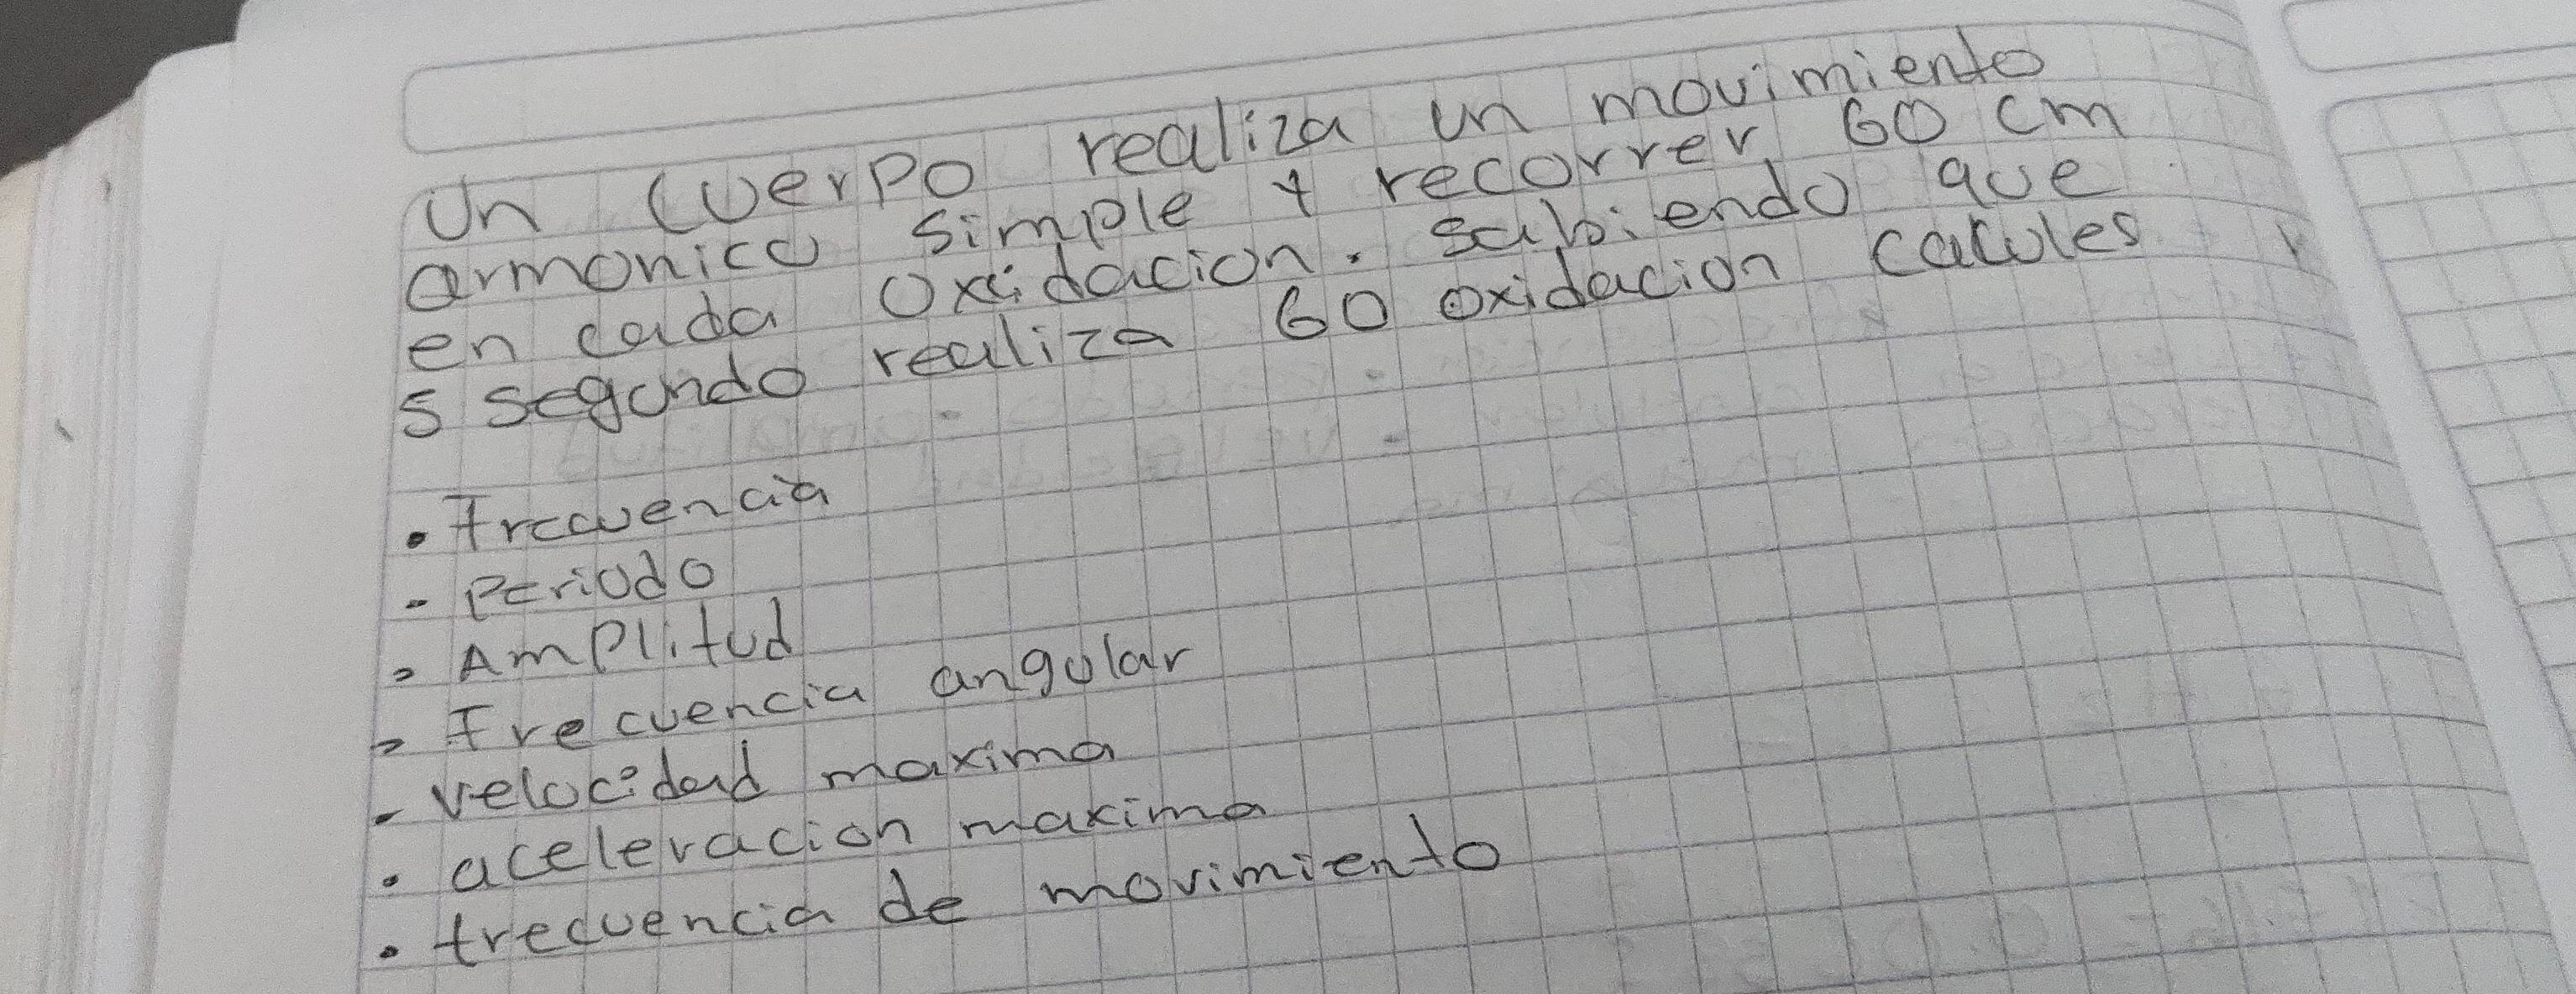 Un cuerpo realiza un movimiento
armonico simple y recorrer 60 cm
en cada oxidacion. sabiendo que
5 segundo realiza 60 oxidacion calcules
• Frecuencia
- Periodo
- Amplitud
- Frecuencia angular
- velocidad maxima
• aceleracion maxima
• frecuencia de movimiento